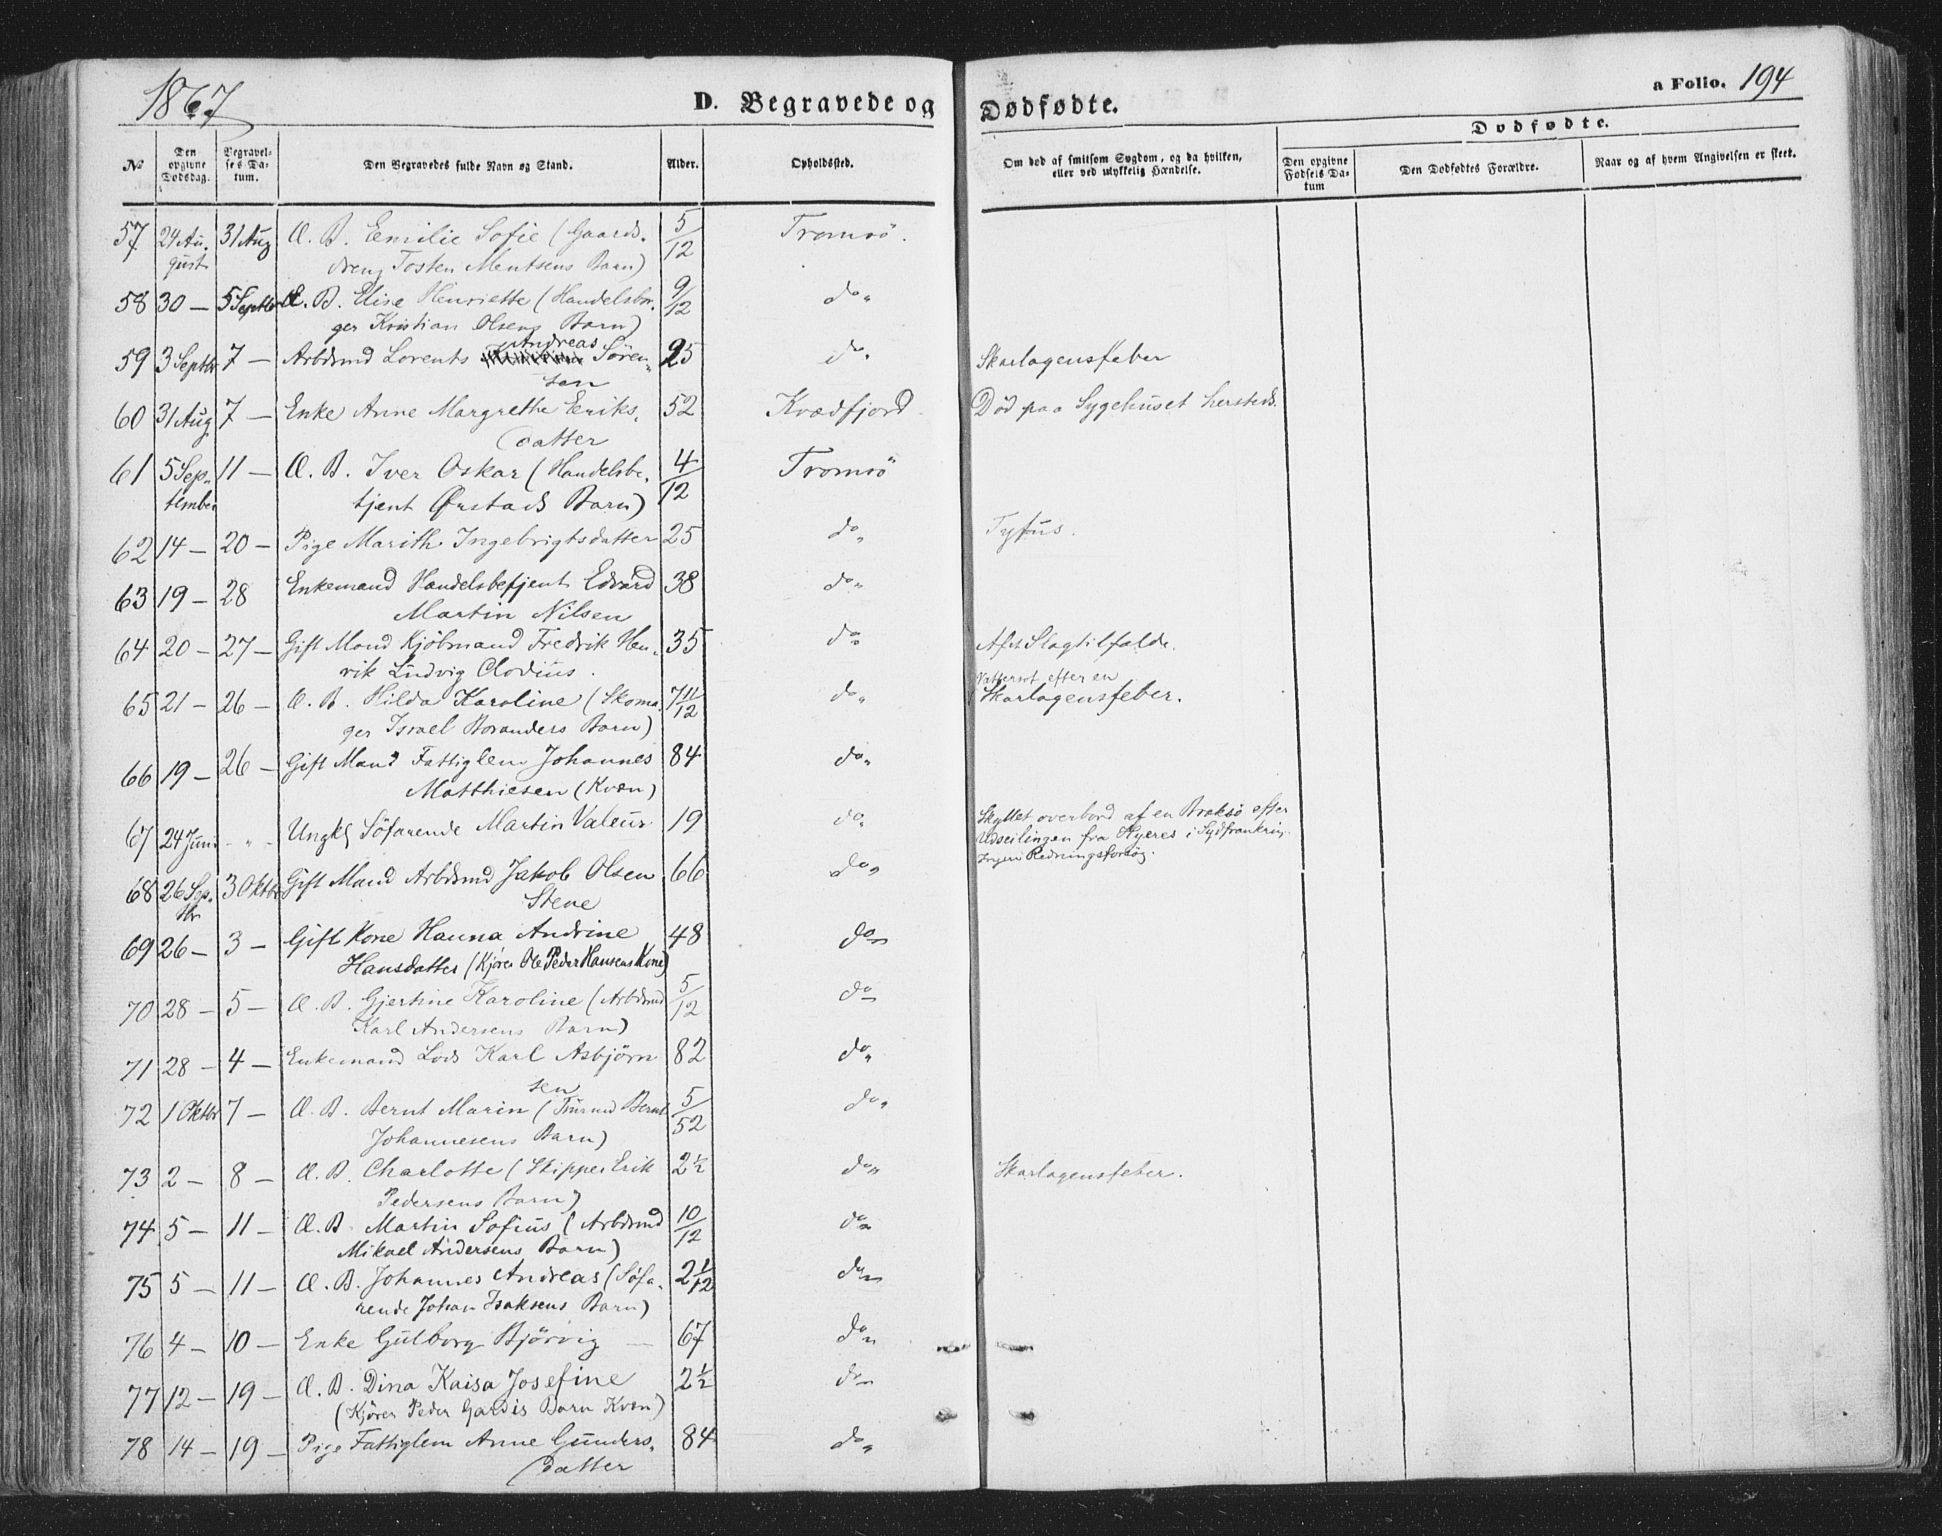 1867
D. Begravede og Dødfødte.
a Folio. 194
No
Den opgivne Dødsdag.
Begravelses Datum.
Den Begravedes fulde Navn og Stand.
Alder.
Opholdssted.
Om død af smitsom Sygdom, og da hvilken, eller ved ulykkelig Hændelse.
Dødfødte.
Den opgivne Fødsels Datum
Den Dødfødtes Forældre.
Naar og af hvem Angivelsen er skeet.
57 24 Au- 31 Aug Æ. B. Emilie Sofie (Gaards- 5/12 Tromsö.
gust dreng Tosten Mentsens Barn)
58 30 — 5 Septbr Æ. B. Elise Henriette (Handelsbor- 9/12 do„
ger Kristian Olsens Barn)
Andreas
59 3 Septbr 7 — Arbdsmd Lorents Sören- 25 do„ Skarlagensfeber
sen
60 31 Aug 7 — Enke Anne Margrethe Eriks- 52 Kvædfjord Död paa Sygehuset hersteds.
datter
61 5 Sep- 11 — Æ. B. Iver Oskar (Handelsbe- 4/12 Tromsö
tember tjent Örstads Barn)
62 14 — 20 — Pige Marith Ingebrigtsdatter 25 do„ Tyfus.
63 19 — 28 Enkemand Handelsbetjent Edvard 38 do„
Martin Nilsen
64 20 — 27 — Gift Mand Kjöbmand Fredrik Hen- 35 do„ Af et Slagtilfælde.
rik Ludvig Clodius.
Vattersot efter en
65 21 — 26 — Æ. B. Hilda Karoline (Skoma- 7 11/12 do„ Skarlagensfeber.
ger Israel Boranders Barn)
66 19 — 26 — Gift Mand Fattiglem Johannes 84 do„
Matthiesen (Kvæn)
67 24 Juni - „ - Ungk Söfarende Martin Valeur 19 do„ Skyllet overbord af en Braksö efter
Udseilingen fra Hyeres i Sydfrankrig.
Ingen Redningsforsög.
68 26 Sep- 3 Oktbr Gift Mand Arbdsmd Jakob Olsen 66 do„
tbr Stene
69 26 — 3 — Gift Kone Hanna Andrine 48 do„
Hansdatter (Kjörer Ole Peder Hansens Kone)
70 28 — 5 — Æ. B. Gjertine Karoline (Arbdsmd 5/12 do„
Karl Andersens Barn)
71 28 — 4 — Enkemand Lods Karl Asbjörn 82 do„
sen
72 1 Oktbr 7 — Æ. B. Bernt Marin ( Bernt 5/52 do„
Johannesens Barn)
73 2 — 8 — Æ. B. Charlotte (Skipper Erik 2½ do„ Skarlagensfeber.
Pedersens Barn)
74 5 — 11 — Æ. B. Martin Sofius (Arbdsmd 10/12 do„
Mikael Andersens Barn)
75 5 — 11 — Æ. B. Johannes Andreas (Söfa- 2 1/12 do„
rende Johan Isaksens Barn)
76 4 — 10 — Enke Gulborg Bjørvig — 67 do„
77 12 — 19 — Æ. B. Dina Kaisa Josefine 2½ do„
(Kjörer Peder Gardis Barn Kvæn)
78 14 — 19 — Pige Fattiglem Anne Gunders- 84 do„
datter